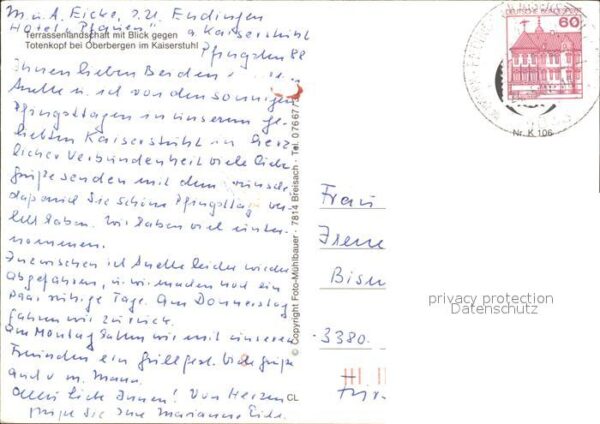 M. u. A. Eicke, z. Zt. Endingen
Hotel "Pfauen" a. Kaiserstuhl
Terrassenlandschaft mit Blick gegen
Totenkopf bei Oberbergen im Kaiserstuhl
Pfingsten 88
Ihnen lieben Beiden
Anette u. ich von den sonnigen
Pfingsttagen in unserem ge-
liebten Kaiserstuhl in herz-
licher Verbundenheit viele liebe
Grüße senden mit dem Wunsche
daß auch Sie schöne Pfingsttage ver-
lebt haben. Wir haben viel unter-
nommen.
Inzwischen ist Anette leider wieder
abgefahren, u. wir machen noch ein
paar ruhige Tage. Am Donnerstag
fahren wir zurück.
Am Montag hatten wir mit unseren
Freunden ein Grillfest. Viele Grüße
auch v. m. Mann.
Alles Liebe Ihnen! Von Herzen
grüße Sie Ihre Marianne Eicke
© Copyright Foto-Mühlbauer · 7814 Breisach · Tel. 07667/
CL
DEUTSCHE BUNDESPOST
60
Nr. K 106
Frau
Irene
Bism
3380
privacy protection
Datenschutz